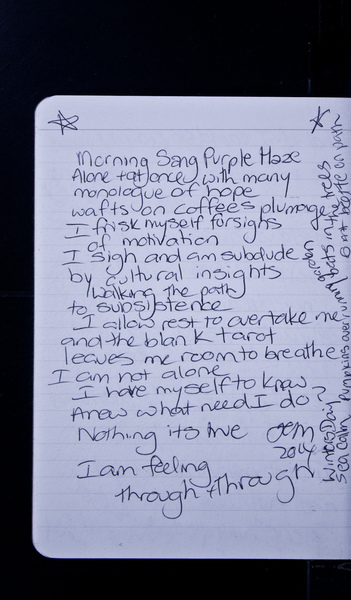 Morning Sang Purple Haze
Alone + at once, with many
monologue of hope
wafts on coffee's plumage
I frisk myself for signs
of motivation
I sigh and am subdude
by cultural insights
walking the path
to subsistence
I allow rest to overtake me
and the blank tarot
leaves me room to breathe
I am not alone
I have myself to know
Anew what need I do?
Nothing its true
2014
I am feeling
through + through
Winters Day
Sea calm
Pumpkins overrun
garden
bats in the trees
beatle on path